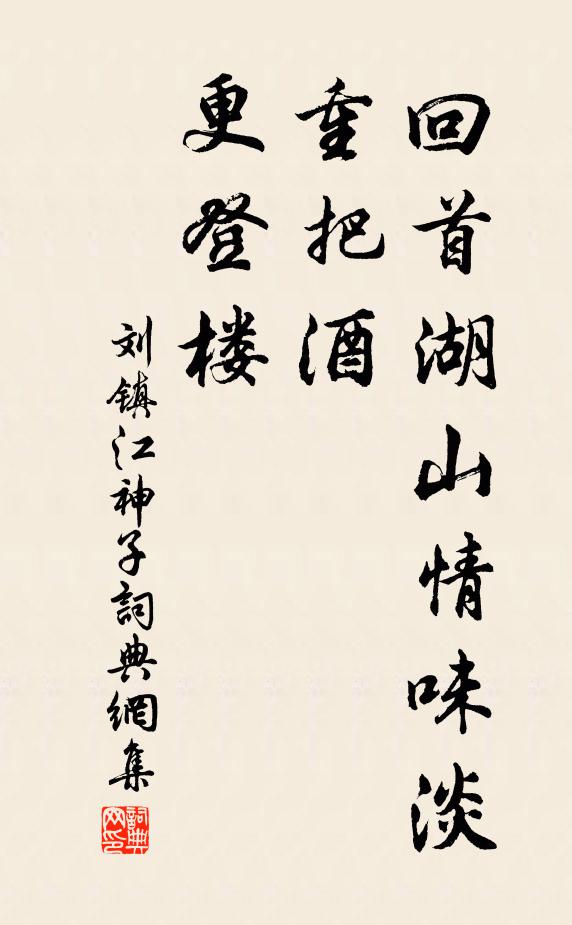 回首湖山情味淡
重把酒
更登楼
刘镇江神子詞典網集
詞典网印